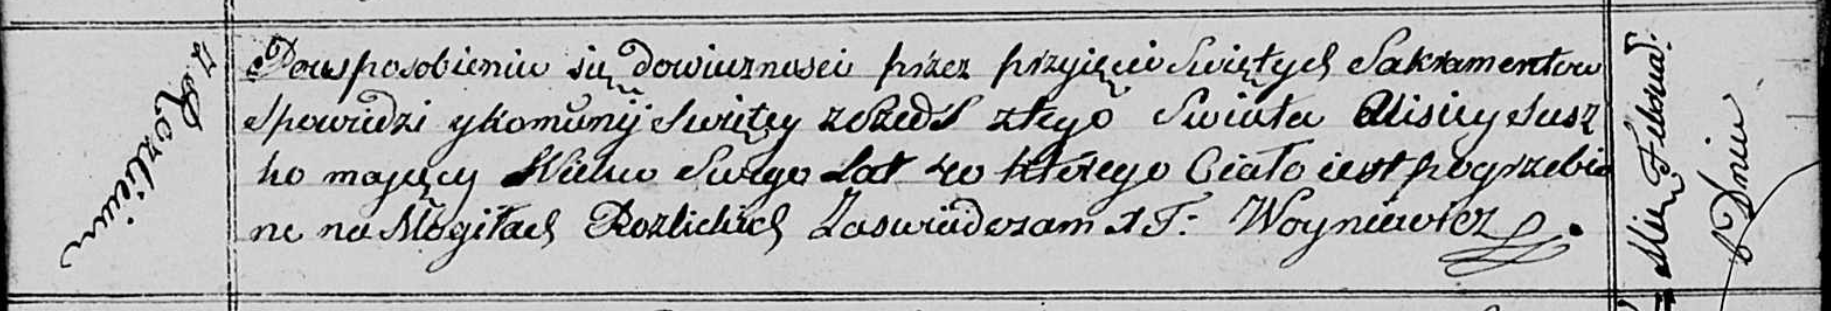 z Rozlicin
Pousposobieniu się dowiecznosci przez przyięcie Swiętych Sakramentow
Spowiedzi ykomunij Swiętey zszedł ztego Swiata Alisiey Susz
ko maiący Wieku Swego Lat 40 którego Ciało iest pogrzebio
ne na Mogiłach Rozlickich Zaswiadczam X F: Woyniewicz
Mie: Februar:
6 Dnia